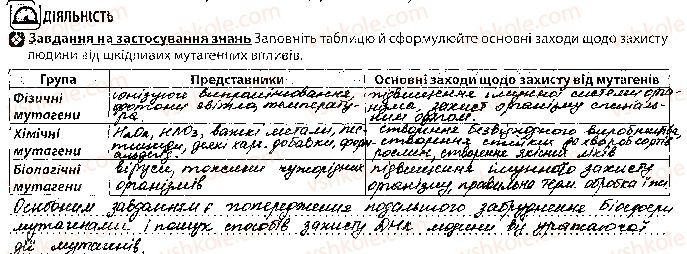 ДІЯЛЬНІСТЬ
Завдання на застосування знань Заповніть таблицю й сформулюйте основні заходи щодо захисту
людини від шкідливих мутагенних впливів.
Група Представники Основні заходи щодо захисту від мутагенів
Фізичні мутагени
іонізуюче випромінювання,
фотони світла, температу-
ра.
підвищення імунної системи орга-
нізма, захист організму спеціаль-
ним одягом.
Хімічні мутагени
HNO3, важкі метали, пес-
тициди, деякі харч. добавки, фор-
мальдегід.
створення безвідходного виробництва,
створення стійких до хвороб сортів
рослин, створення якісних ліків
Біологічні мутагени
віруси, токсини чужорідних
організмів
підвищення імунного захисту
організму, правильна терм. обробка їжі
Основним завданням є попередження подальшого забруднення біосфери
мутагенами і пошук способів захисту ДНК людини від уражаючої
дії мутагенів.